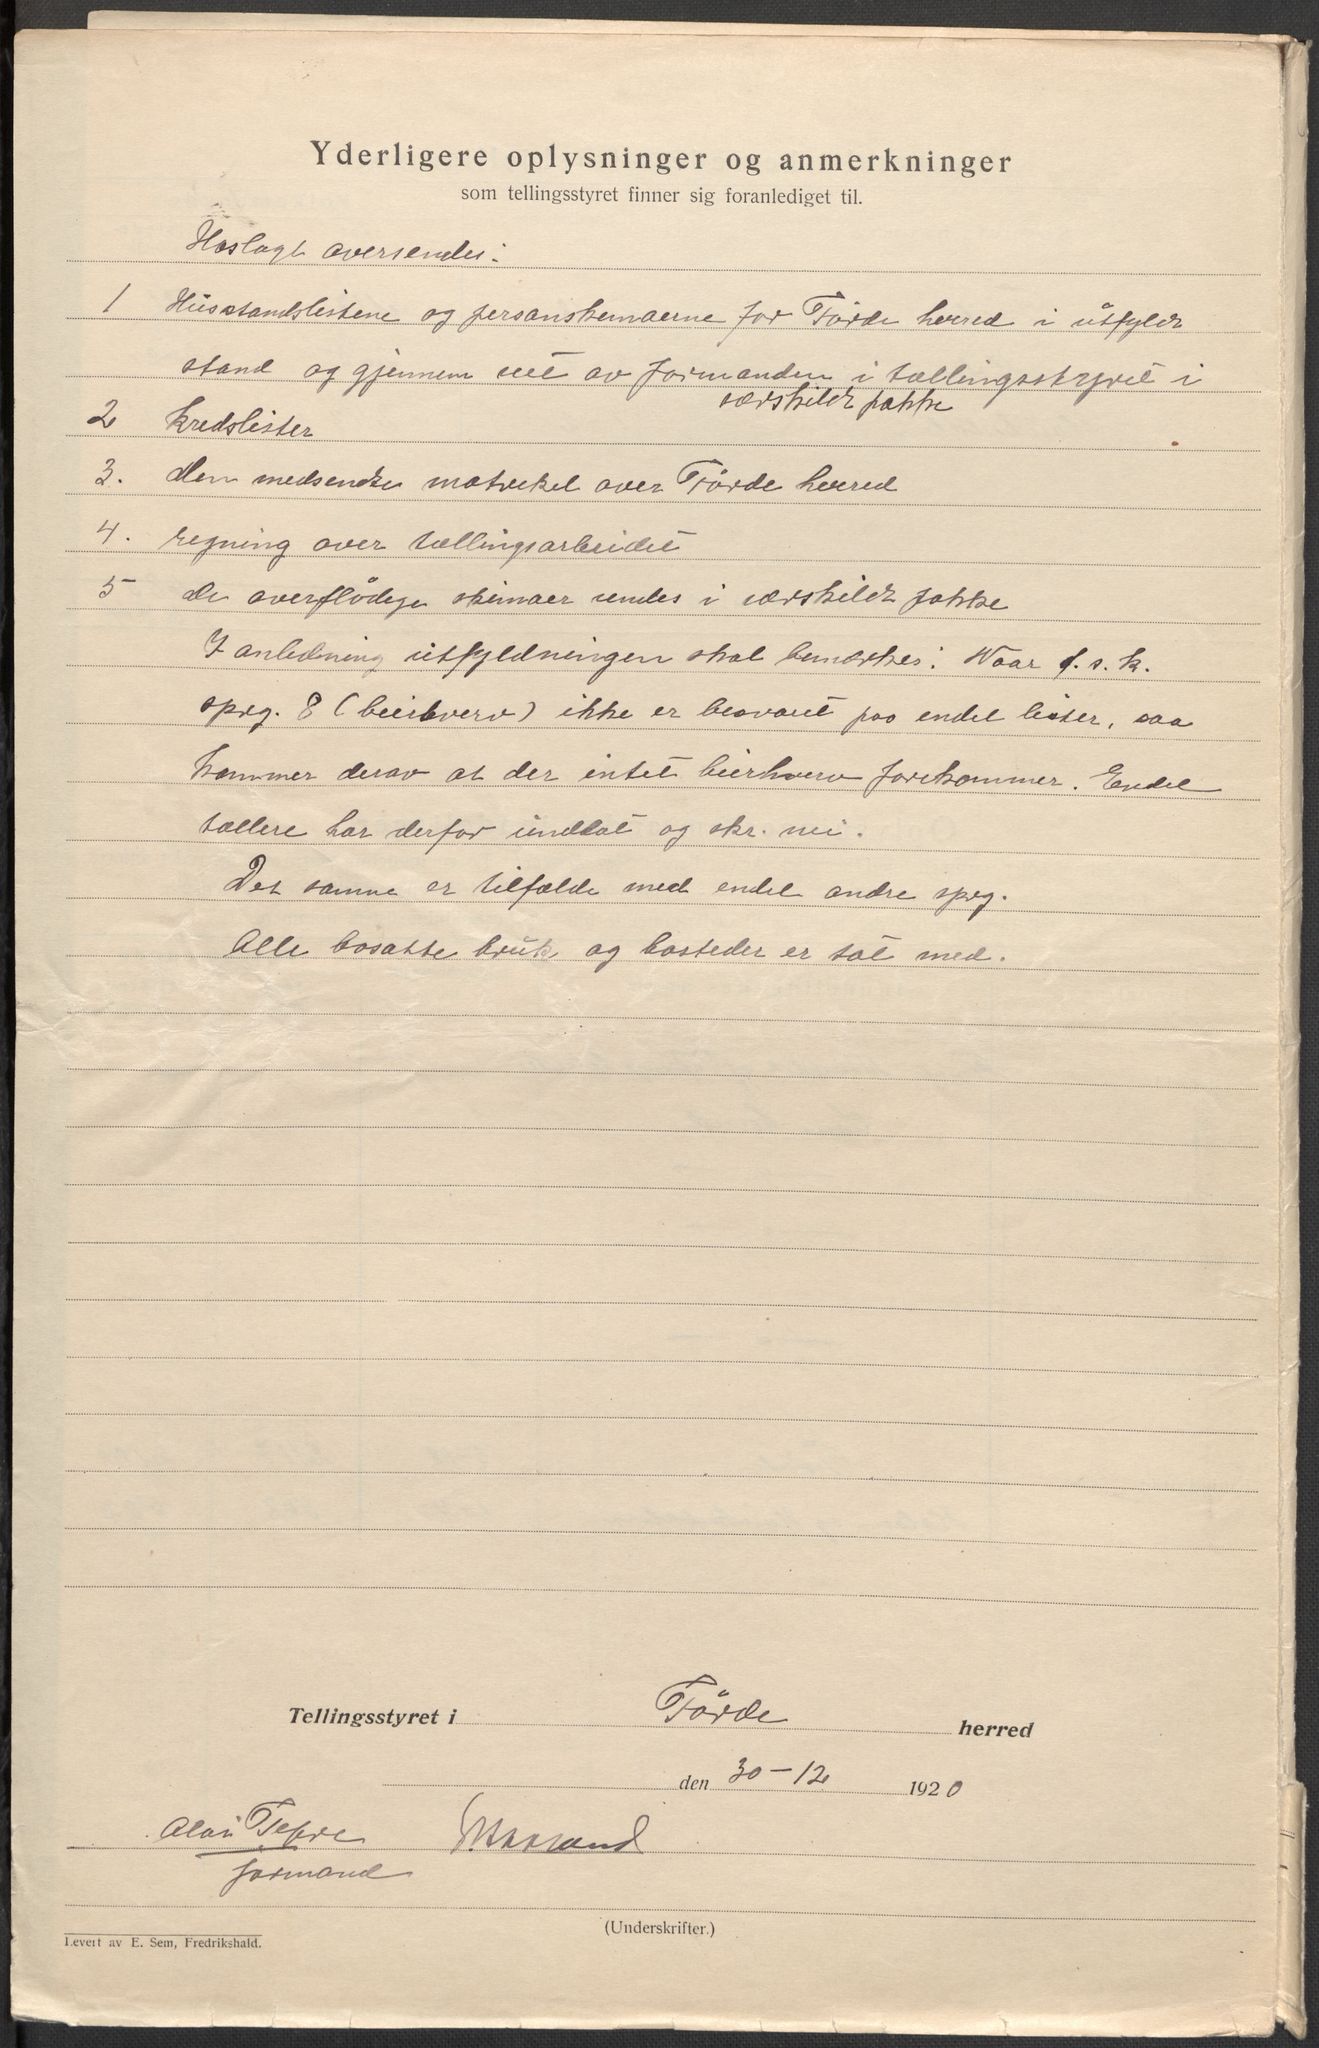 Yderligere oplysninger og anmerkninger
som tellingsstyret finner sig foranlediget til.
Hoslagt oversendes:
1 Husstandslistene og personskemaerne for Förde herred i utfyldt
stand og gjennem set av formanden i tællingsstyret i
særskildt pakke
2 Kredslister
3. den medsendte matrikel over Förde herred
4. regning over tællingsarbeidet
5 de overflødige skemaer sendes i særskildt pakke
I anledning utfyldningen skal bemerkes: Naar f. s. k.
sprg. 8 (beierhverv) ikke er besvaret paa endel lister, saa
kommer derav at der intet bierhverv forekommer. Endel
tællere har derfor undlat og skr. nei.
Det samme er tilfælde med endel andre sprg.
Alle bosatte bruk og bosteder er tat med.
Tellingsstyret i Förde herred
den 30-12 1920
formand
(Underskrifter.)
Levert av E. Sem, Fredrikshald.